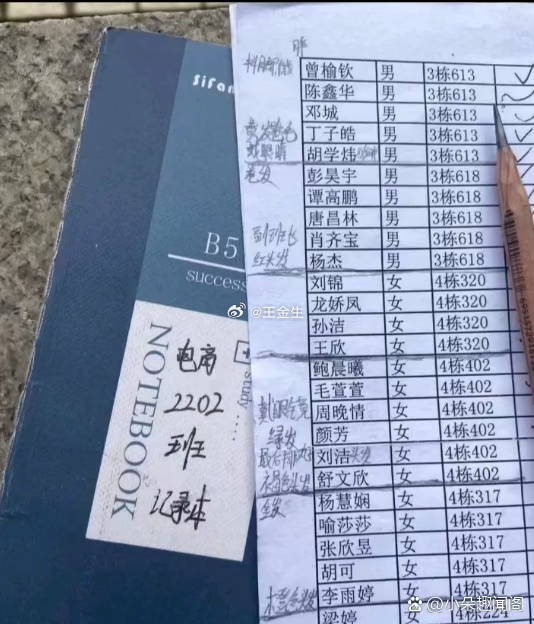 Sifan
B5
success
NOTEBOOK
study
电商
2202
班
记录本
班
曾榆钦 男 3栋613
陈鑫华 男 3栋613
邓城 男 3栋613
丁子皓 男 3栋613
胡学炜 男 3栋613
彭昊宇 男 3栋618
谭高鹏 男 3栋618
唐昌林 男 3栋618
副班长 肖齐宝 男 3栋618
红头发 杨杰 男 3栋618
刘锦 女 4栋320
龙娇凤 女 4栋320
孙洁 女 4栋320
王欣 女 4栋320
鲍晨曦 女 4栋402
毛萱萱 女 4栋402
戴眼镜 周晚情 女 4栋402
绿发 颜芳 女 4栋402
刘洁 女 4栋402
舒文欣 女 4栋402
金发 杨慧娴 女 4栋317
喻莎莎 女 4栋317
张欣昱 女 4栋317
胡可 女 4栋317
橙色头发 李雨婷 女 4栋317
梁婷 女 4栋224
@王金生
@小朵趣闻阁